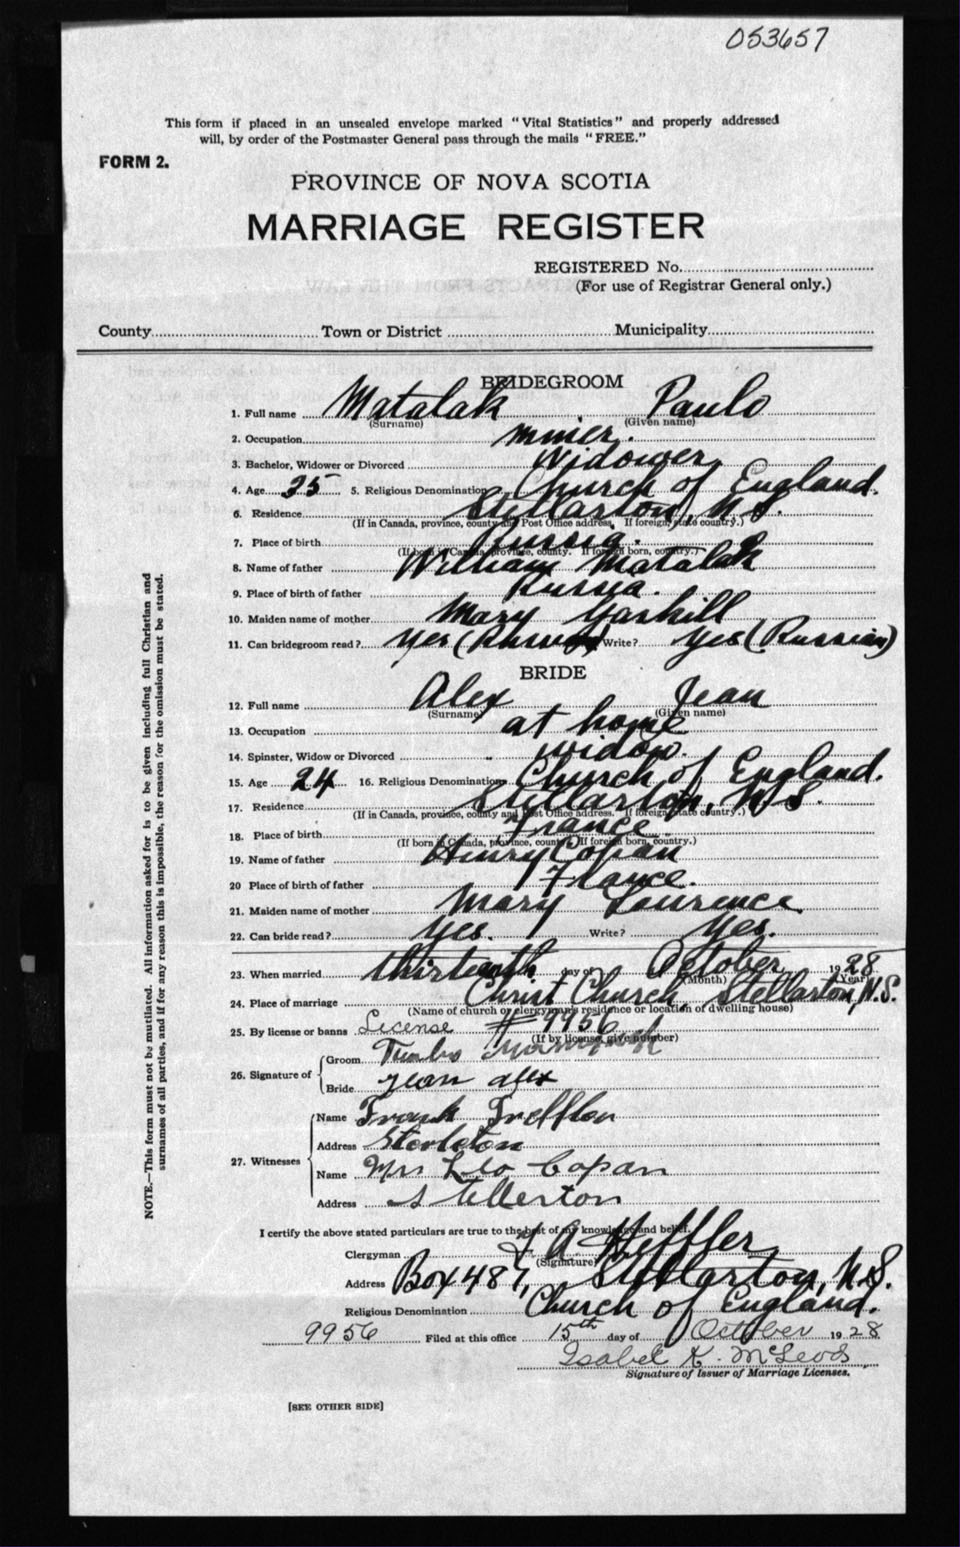 053657
This form if placed in an unsealed envelope marked "Vital Statistics" and properly addressed
will, by order of the Postmaster General pass through the mails "FREE."
FORM 2.
PROVINCE OF NOVA SCOTIA
MARRIAGE REGISTER
REGISTERED No.
(For use of Registrar General only.)
County Town or District Municipality
BRIDEGROOM
1. Full name Matalak Paulo
(Surname) (Given name)
2. Occupation miner.
3. Bachelor, Widower or Divorced Widower
4. Age 35 5. Religious Denomination Church of England.
6. Residence Stellarton, N.S.
(If in Canada, province, county and Post Office address. If foreign, state country.)
7. Place of birth Russia.
(If born in Canada, province, county. If foreign born, country.)
8. Name of father William Matalak
9. Place of birth of father Russia.
10. Maiden name of mother Mary Gaskill
11. Can bridegroom read? Yes (Russian) Write? Yes (Russian)
BRIDE
12. Full name Alex Jean
(Surname) (Given name)
13. Occupation at home
14. Spinster, Widow or Divorced widow.
15. Age 24 16. Religious Denomination Church of England.
17. Residence Stellarton, N.S.
(If in Canada, province, county and Post Office address. If foreign, state country.)
18. Place of birth France.
(If born in Canada, province, county. If foreign born, country.)
19. Name of father Henry Copan
20 Place of birth of father France.
21. Maiden name of mother Mary Laurence
22. Can bride read? Yes. Write? Yes.
23. When married thirteenth day of October 1928
(Month) (Year)
24. Place of marriage Christ Church, Stellarton, N.S.
(Name of church or clergyman's residence or location of dwelling house)
25. By license or banns License # 9956
(If by license, give number)
26. Signature of
Groom
Bride Jean Alex
27. Witnesses
Name Frank
Address
Name Mrs Leo Copan
Address Stellerton
I certify the above stated particulars are true to the best of my knowledge and belief.
Clergyman
(Signature)
Address Box 487, Stellarton, N.S.
Religious Denomination Church of England.
9956 Filed at this office 15th day of October 1928
Isabel K. McLeod
Signature of Issuer of Marriage Licenses.
[SEE OTHER SIDE]
NOTE.—This form must not be mutilated. All information asked for is to be given including full Christian and
surnames of all parties, and if for any reason this is impossible, the reason for the omission must be stated.